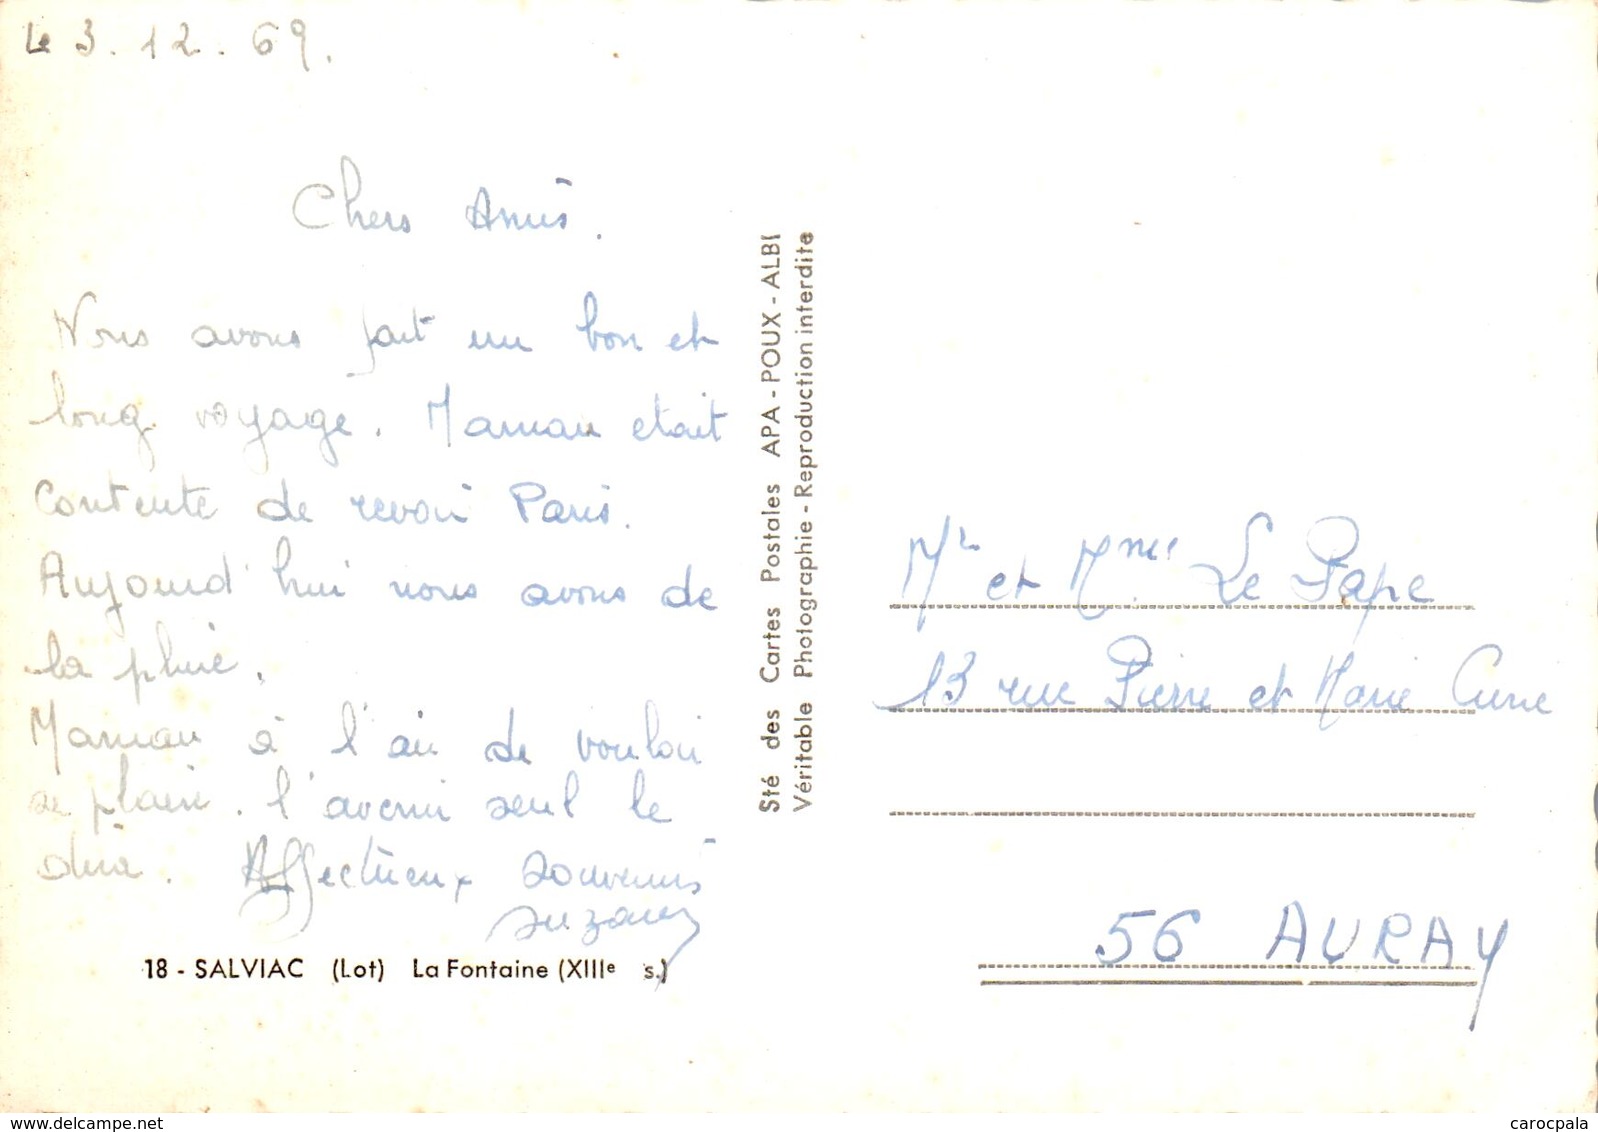 Le 3.12.69.
Chers Amis.
Nous avons fait un bon et
long voyage. Maman etait
Contente de revoir Paris.
Aujourd'hui nous avons de
la pluie.
Maman à l'air de vouloir
se plaire. l'avenir seul le
dira. Affectueux souvenirs
Suzanne
18 - SALVIAC (Lot) La Fontaine (XIIIe s.)
Sté des Cartes Postales APA - POUX - ALBI
Véritable Photographie - Reproduction interdite
Mr et Mme Le Pape
13 rue Pierre et Marie Curie
56 AURAY
www.delcampe.net
carocpala